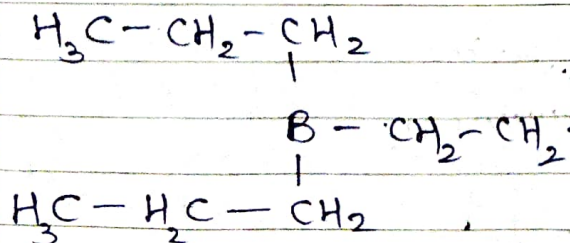 H₃C - CH₂ - CH₂
|
B - CH₂ - CH₂
|
H₃C - H₂C - CH₂